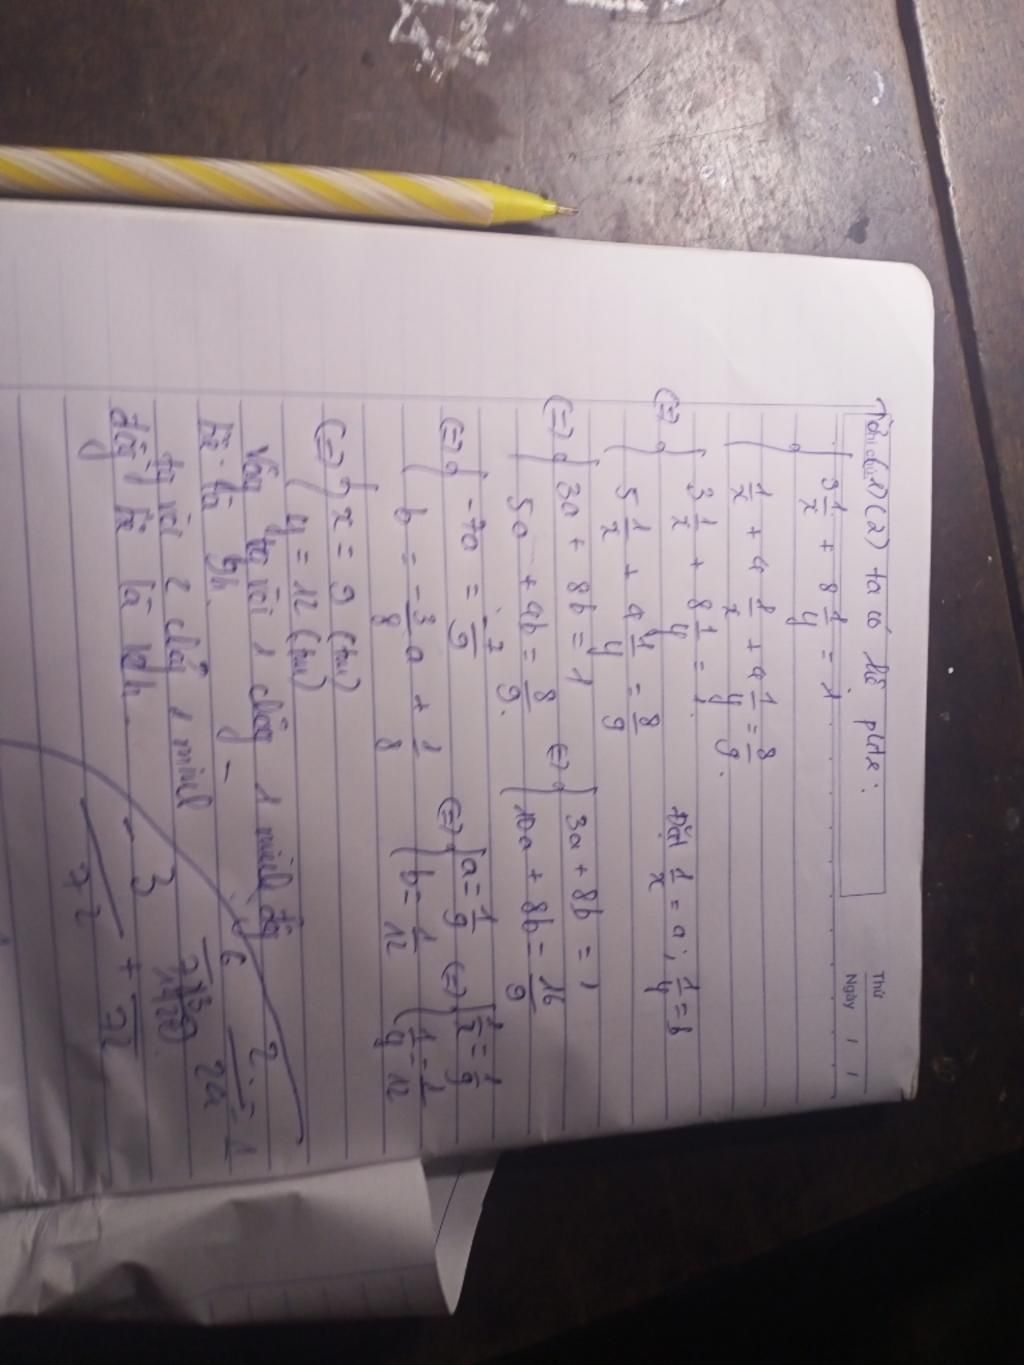 Thứ
Ngày / /
(1) (2) ta có hệ ptr :
3 1/x + 8 1/y = 1
1/x + 4 1/x + 4 1/y = 8/9
(=) 3 1/x + 8 1/y = 1
5 1/x + 4 1/y = 8/9
Đặt 1/x = a ; 1/y = b
(=) 3a + 8b = 1 (=) 3a + 8b = 1
5a + 4b = 8/9 10a + 8b = 16/9
(=) -7a = -7/9 (=) a = 1/9 (=) 1/x = 1/9
b = -3/8 a + 1/8 b = 1/12 1/y = 1/12
(=) x = 9 (tm)
y = 12 (tm)
Vậy vòi 1 chảy 1 mình đầy
bể là 9h
vòi 2 chảy 1 mình
đầy bể là 12h